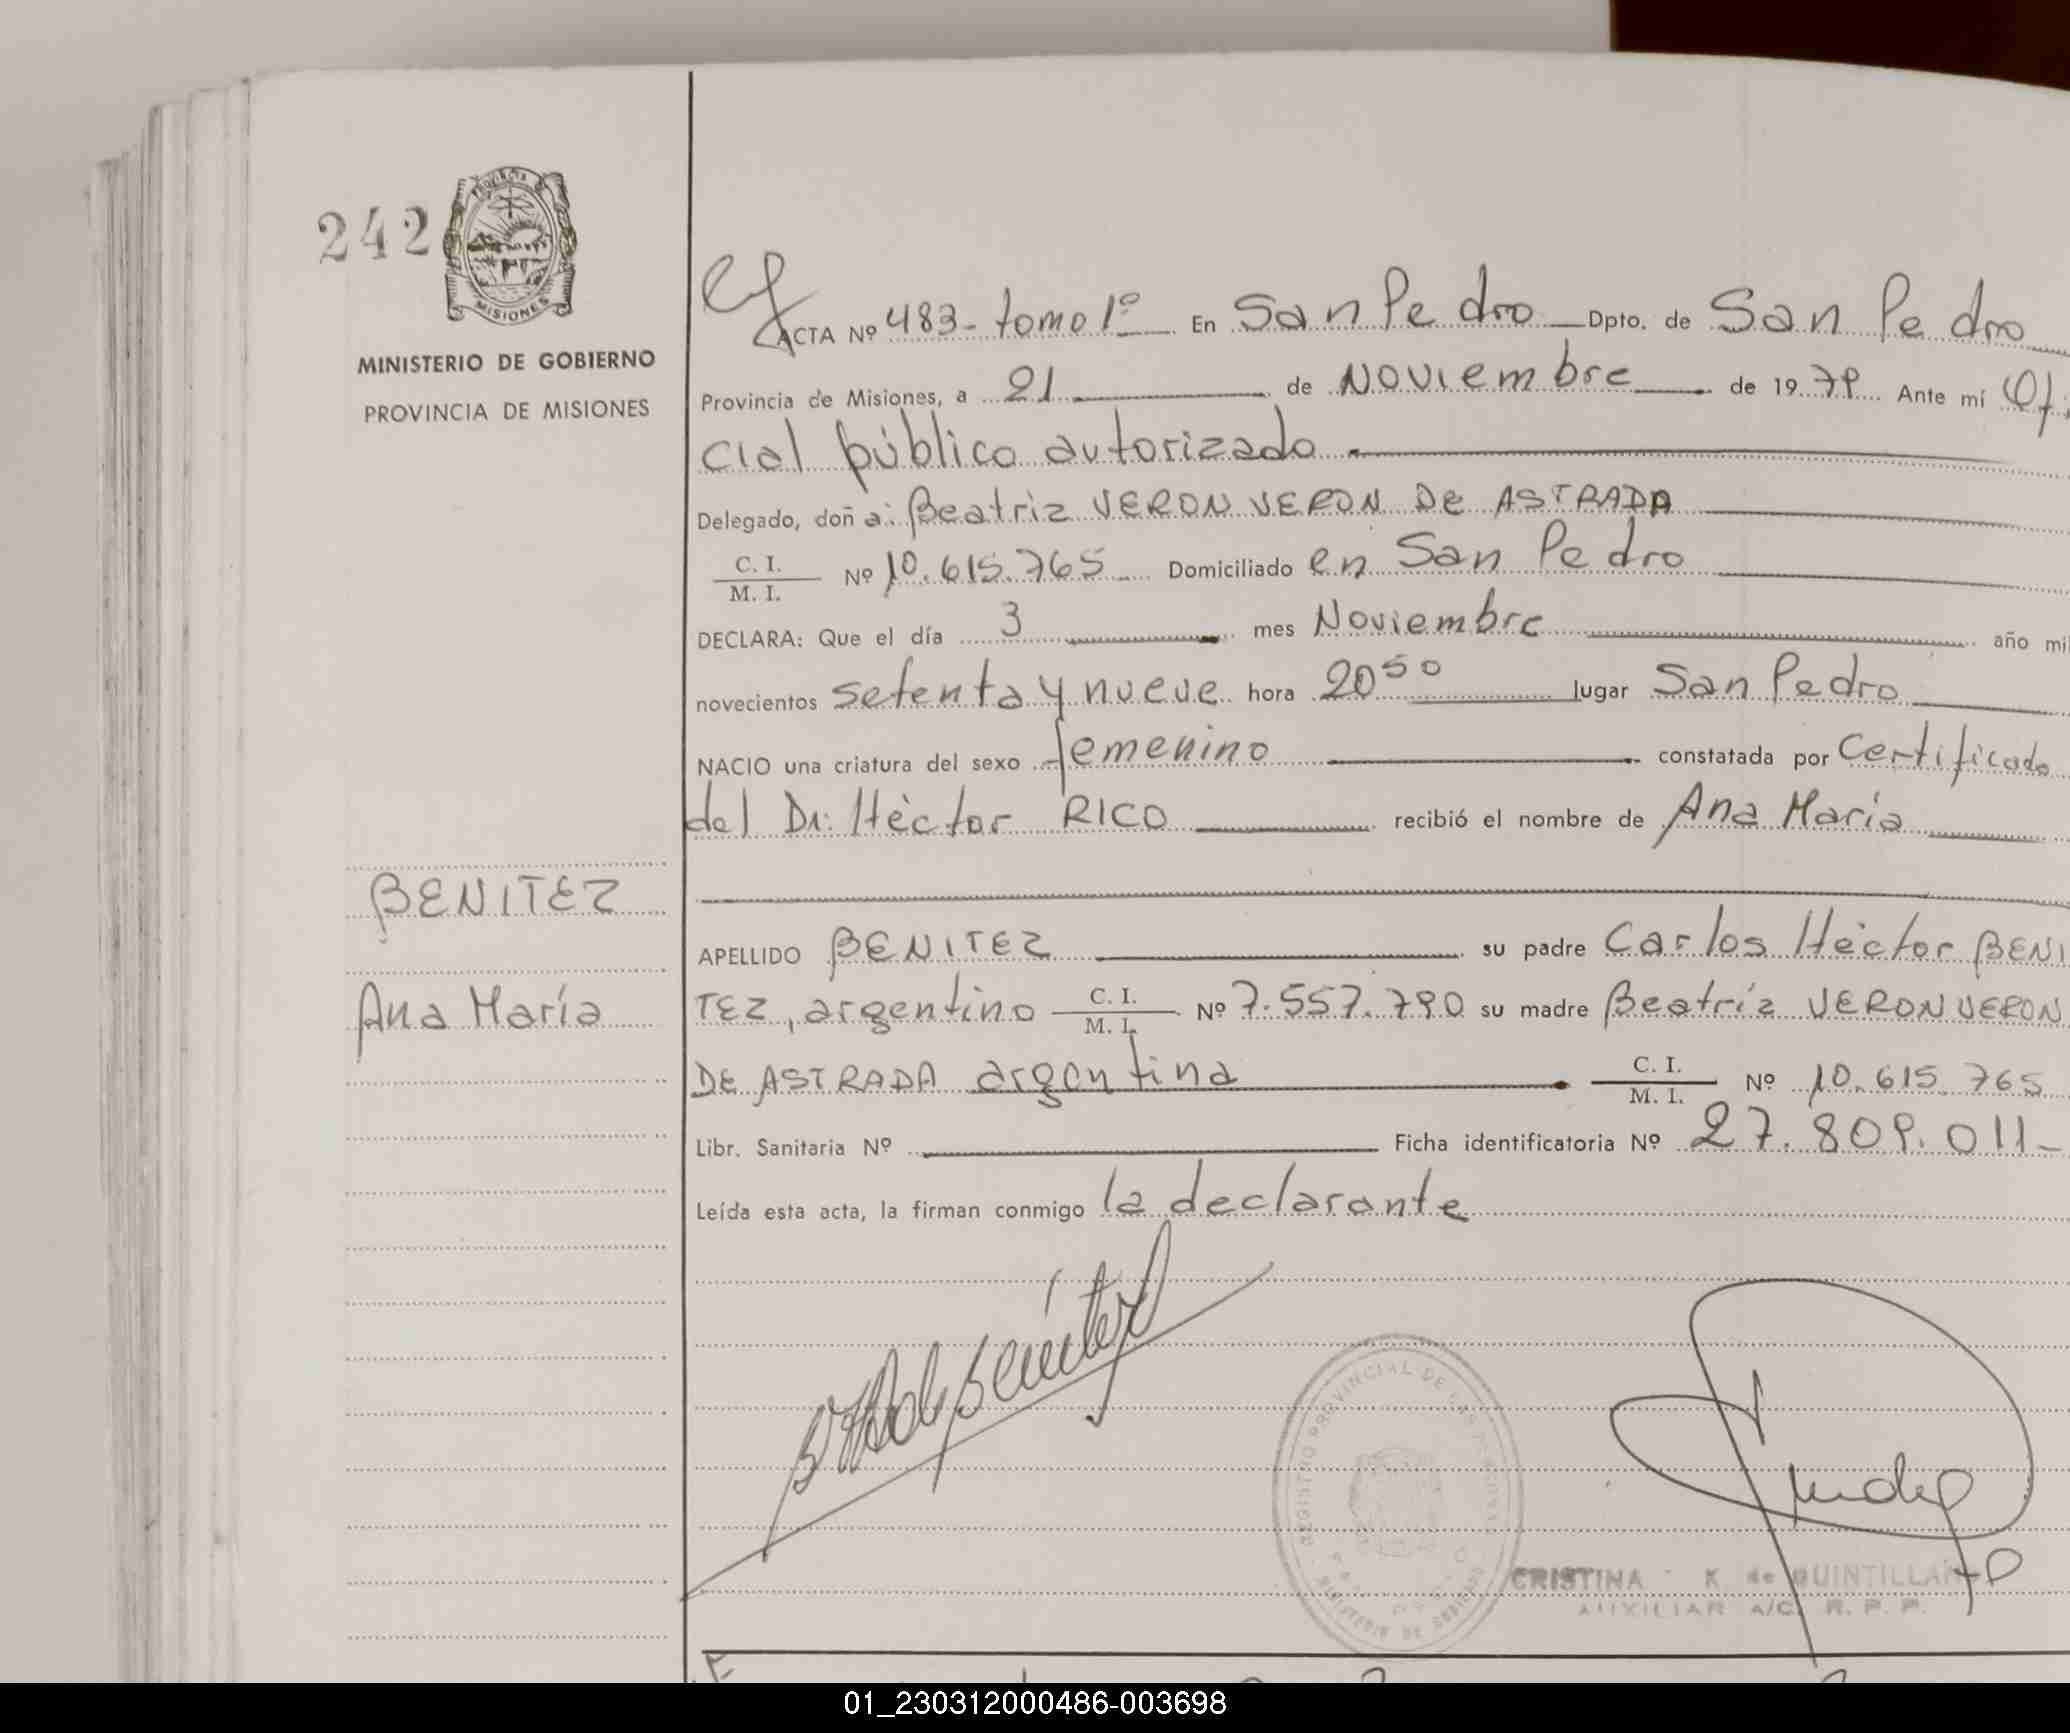 242
PROVINCIA
MISIONES
MINISTERIO DE GOBIERNO
PROVINCIA DE MISIONES
ACTA Nº 483- tomo 1º En San Pedro Dpto. de San Pedro
Provincia de Misiones, a 21 de Noviembre de 1979 Ante mí Ofi
cial público autorizado
Delegado, doña: Beatriz VERON VERON DE ASTRADA
C. I.
M. I. Nº 10.615.765 Domiciliado en San Pedro
DECLARA: Que el día 3 mes Noviembre año mil
novecientos setenta y nueve hora 20 50 lugar San Pedro
NACIO una criatura del sexo femenino constatada por Certificado
del Dr: Héctor RICO recibió el nombre de Ana María
BENITEZ
Ana María
APELLIDO BENITEZ su padre Carlos Héctor BENI
TEZ, argentino C. I. M. I. Nº 7.557.790 su madre Beatríz VERON VERON
DE ASTRADA argentina C. I. M. I. Nº 10.615.765
Libr. Sanitaria Nº Ficha identificatoria Nº 27.809.011-
Leída esta acta, la firman conmigo la declarante
REGISTRO PROVINCIAL DE LAS PERSONAS
MINISTERIO DE GOBIERNO
CRISTINA K de QUINTILLAN
AUXILIAR A/C. R. P. P.
01_230312000486-003698